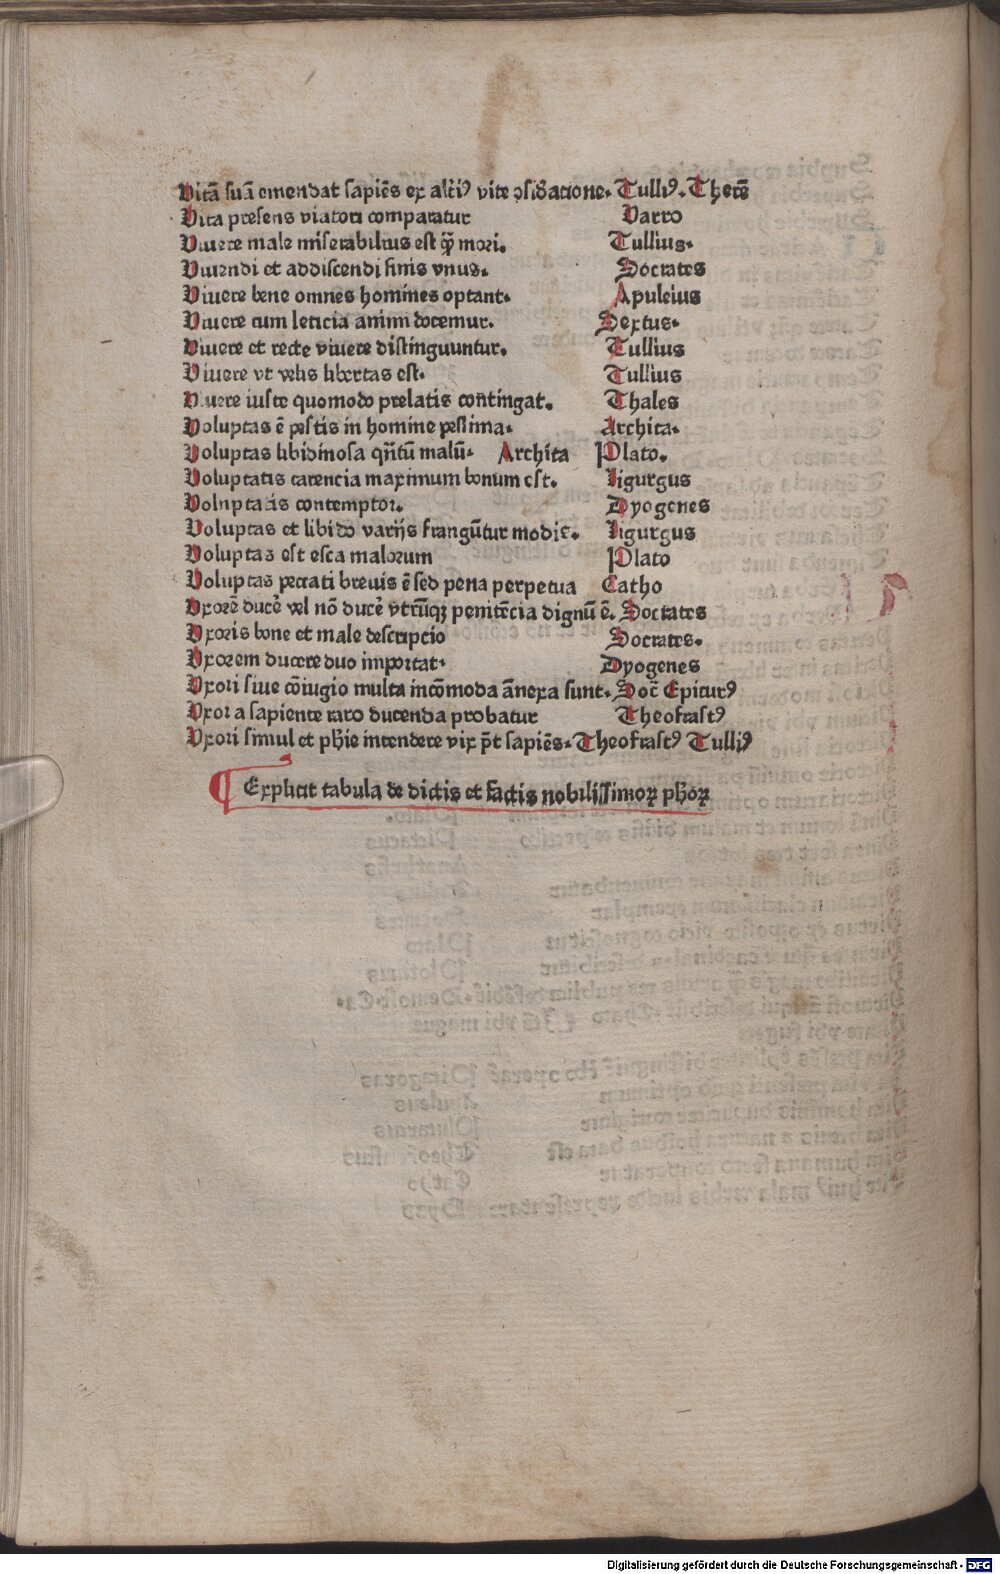 Vitā suā emendat sapiēs ex alteriꝰ vite ↄsid'atione. Tulliꝰ. Therē
Vita presens viatori comparatur Varro
Viuere male miserabilius est q̄ꝫ mori. Tullius.
Viuendi et addiscendi finis vnus. Socrates
Viuere bene omnes homines optant. Apuleius
Viuere cum leticia animi docemur. Sextus.
Viuere et recte viuere distinguuntur. Tullius
Viuere vt velis libertas est. Tullius
Viuere iuste quomodo prelatis contingat. Thales
Voluptas ē pestis in homine pessima. Archita.
Voluptas libidinosa qn̄tū malū. Archita Plato.
Voluptatis carencia maximum bonum est. ligurgus
Voluptatis contemptor. Dyogenes
Voluptas et libido varijs frangūtur modis. ligurgus
Voluptas est esca malorum Plato
Voluptas peccati breuis ē sed pena perpetua Catho
Vxorē ducē vel nō ducē vtrūqꝫ penitēcia dignū ē. Socrates
Vxoris bone et male descripcio Socrates.
Vxorem ducere duo importat. Dyogenes
Vxori siue cōiugio multa incōmoda ānexa sunt. Soc̄ Epicurꝰ
Vxor a sapiente raro ducenda probatur Theofrastꝰ
Vxori simul et ph̄ie intendere vix p̄t sapiēs. Theofrastꝰ Tulliꝰ
Explicit tabula de dictis et factis nobilissimoꝝ ph̄oꝝ
Digitalisierung gefördert durch die Deutsche Forschungsgemeinschaft - DFG